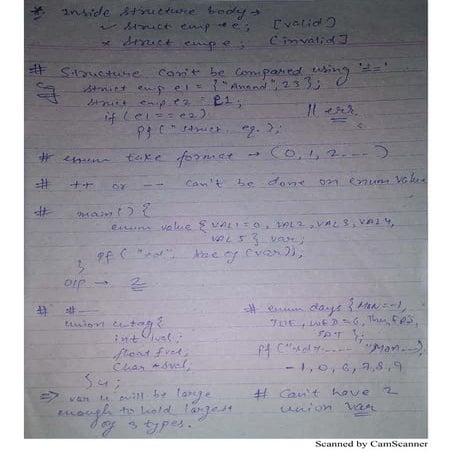 * Inside structure body →
✓ struct emp *e; [valid]
× struct emp e; [invalid]
# Structure can't be compared using '=='
eg struct emp e1 = {"Anand", 23};
struct emp e2 = e1;
if (e1 == e2) // err
pf("struct. eq.");
# enum take format → (0, 1, 2 ....)
# ++ or -- can't be done on enum value
# main() {
enum value {VAL1=0, VAL2, VAL3, VAL4,
VAL5} var;
pf("%d", size of (var));
}
O/P → 2
# #
union utag{
int ival;
float fval;
char *sval;
} u;
⇒ var u will be large
enough to hold largest
of 3 types.
# enum days {MON=-1,
TUE, WED=6, Thu, FRI,
SAT};
pf("%d.... MON...);
-1, 0, 6, 7, 8, 9
# Can't have 2
union var
Scanned by CamScanner